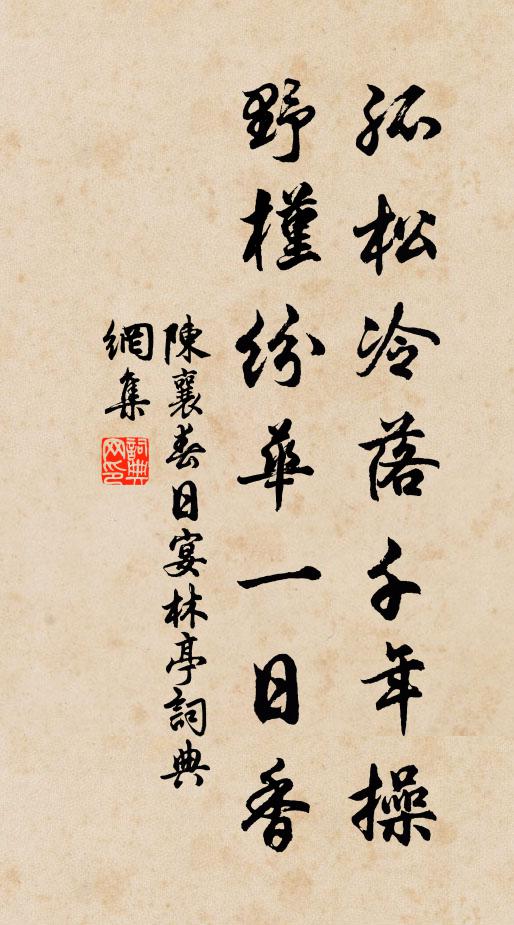 孤松冷落千年操
野槿紛華一日香
陳襄春日宴林亭詞典
網集
詞典网印